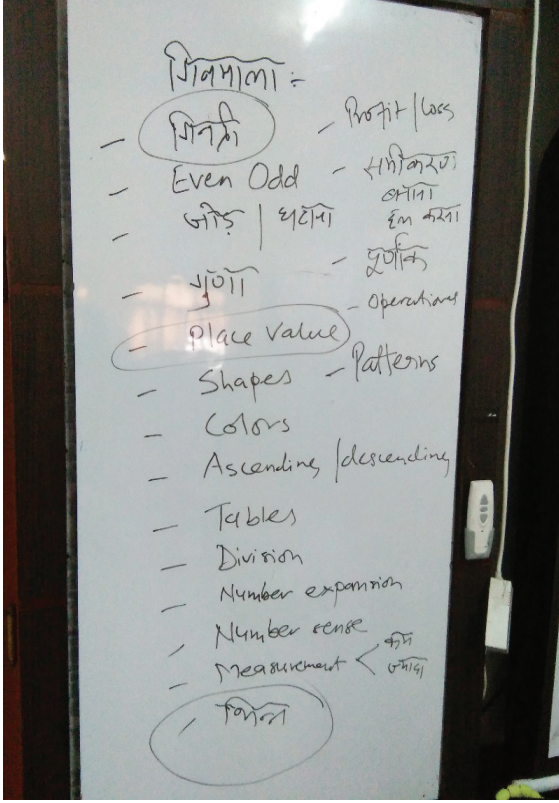 गिनमाला :-
- गिनती
- Even Odd
- जोड़ / घटाना
- गुणा
- Place Value
- Shapes
- Colors
- Ascending / descending
- Tables
- Division
- Number expansion
- Number sense
- Measurement < कम
ज्यादा
- भिन्न
- Profit / Loss
- समीकरण
बनाना
हल करना
- पूर्णांक
- Operations
- Patterns